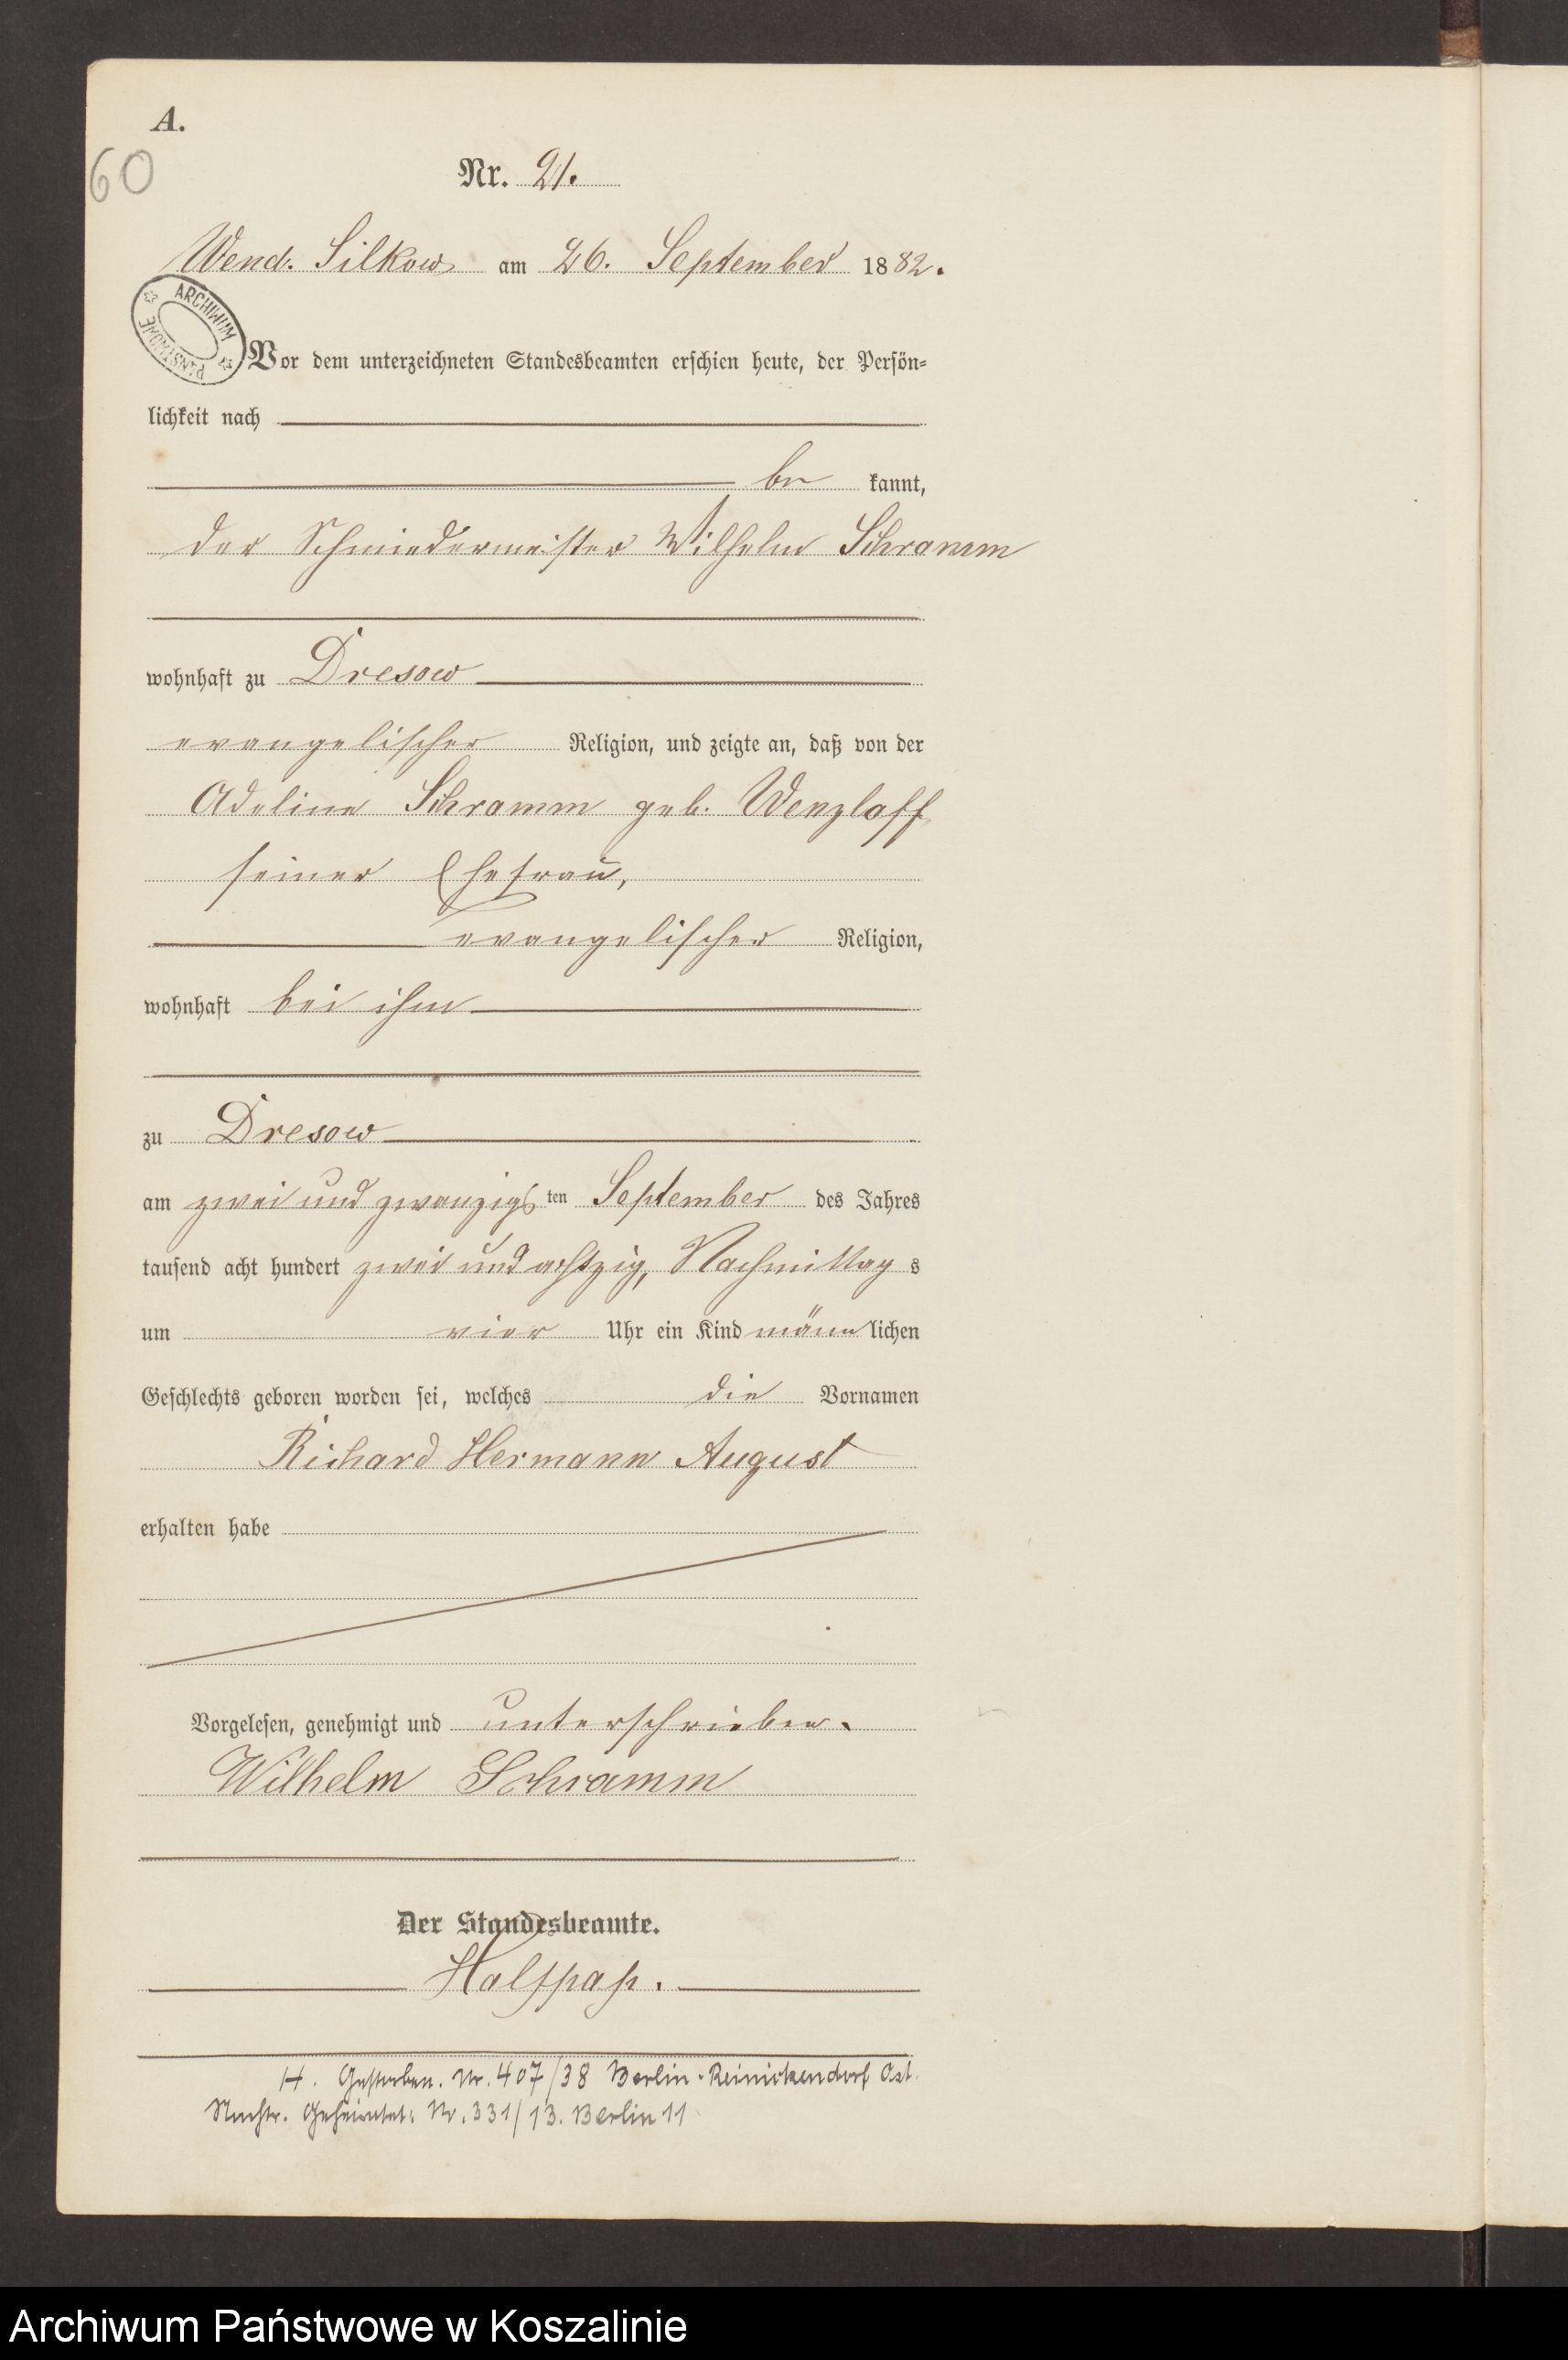 A.
60
Nr. 21.
Wend. Silkow am 26. September 1882.
ARCHIWUM PAŃSTWOWE
Vor dem unterzeichneten Standesbeamten erschien heute, der Persön-
lichkeit nach
be kannt,
der Schmiedemeister Wilhelm Schramm
wohnhaft zu Dresow
evangelischer Religion, und zeigte an, daß von der
Adeline Schramm geb. Wenzlaff
seiner Ehefrau,
evangelischer Religion,
wohnhaft bei ihm
zu Dresow
am zwei und zwanzigsten September des Jahres
tausend acht hundert zwei und achtzig, Nachmittags
um vier Uhr ein Kind männlichen
Geschlechts geboren worden sei, welches die Vornamen
Richard Hermann August
erhalten habe
Vorgelesen, genehmigt und unterschrieben.
Wilhelm Schramm
Der Standesbeamte.
H. Gestorben. Nr. 407/38 Berlin-Reinickendorf Ost.
Geheiratet: Nr. 331/13. Berlin 11
Archiwum Państwowe w Koszalinie